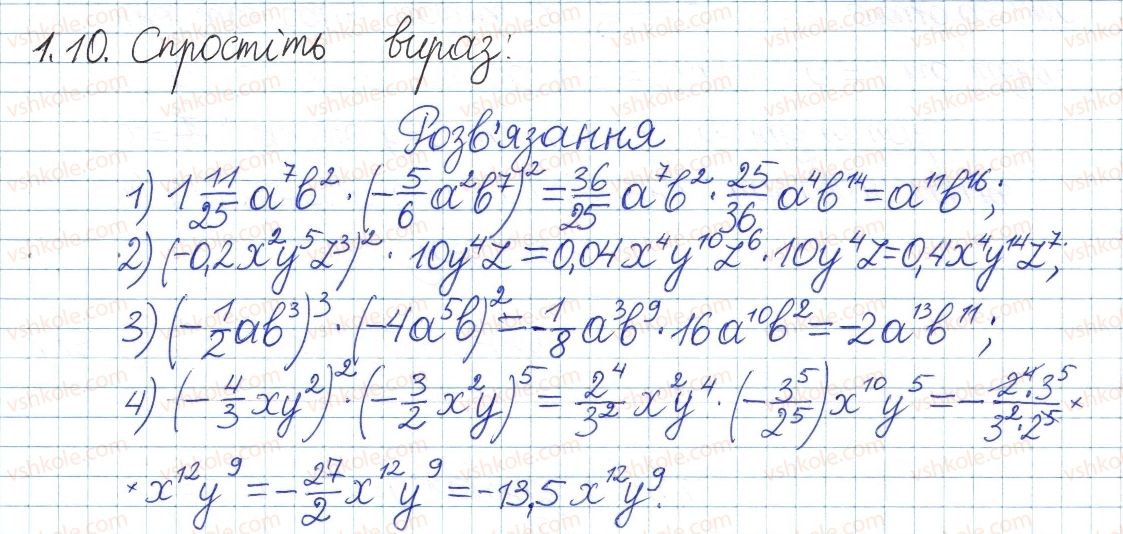 1.10. Спростіть вираз:
Розв'язання
1) 1 11/25 a⁷b² · (-5/6 a²b⁷)² = 36/25 a⁷b² · 25/36 a⁴b¹⁴ = a¹¹b¹⁶;
2) (-0,2x²y⁵z³)² · 10y⁴z = 0,04x⁴y¹⁰z⁶ · 10y⁴z = 0,4x⁴y¹⁴z⁷;
3) (-1/2 ab³)³ · (-4a⁵b)² = -1/8 a³b⁹ · 16a¹⁰b² = -2a¹³b¹¹;
4) (-4/3 xy²)² · (-3/2 x²y)⁵ = 2⁴/3² x²y⁴ · (-3⁵/2⁵) x¹⁰y⁵ = - 2⁴·3⁵/3²·2⁵ ×
× x¹²y⁹ = -27/2 x¹²y⁹ = -13,5x¹²y⁹.